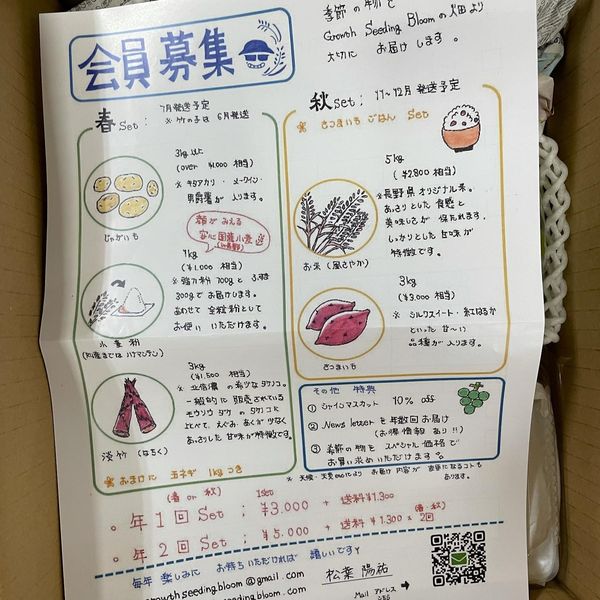 会員募集
季節の物を
Growth Seeding Bloomの畑より
大切に お届けします。
春 Set :
7月発送予定
※竹の子は 6月発送
3kg以上
(over ¥1000 相当)
※ キタアカリ・メークイン・
男爵薯が 入ります。
じゃがいも
顔が みえる
安心国産小麦
1kg
(¥1,000 相当)
※ 強力粉 700gと ふすま
300gで お届けします。
あわせて 全粒粉として
お使い いただけます。
小麦粉
3kg
(¥1,500 相当)
※ 北信濃の希少なタケノコ。
一般的に 販売されている
モウソウダケのタケノコに
比べて、えぐみ、あくが少なく
あっさりした 甘味が特徴です。
淡竹 (はちく)
※ おまけに 玉ネギ 1kgつき
秋 Set : 11~12月 発送予定
※ さつまいも ごはん Set
5kg
(¥2800 相当)
※長野県オリジナル米。
あっさりとした 食感と
美味しさが 保たれます。
しっかりとした 甘味が
特徴です。
お米 (風さやか)
3kg
(¥3,000 相当)
※ シルクスイート・紅はるか
といった 甘~い
品種が入ります。
さつまいも
その他 特典
① シャインマスカット 10% off
② News letter を 年数回お届け
(お得情報 あり!!)
③ 季節の物を スペシャル価格で
お買い求めいただけます。
※ 天候・天災etcにより お届け内容が 変更になるコトも
あります。
(春 or 秋) 1set
○ 年1回 Set ; ¥3.000 + 送料¥1.300
○ 年2回 Set ; ¥5.000 + 送料¥1.300 × 2回
(春・秋)
毎年 楽しみに お待ちいただければ 嬉しいです
growth seeding.bloom@gmail.com
seeding.bloom.com
松葉 陽祐
Mail アドレス